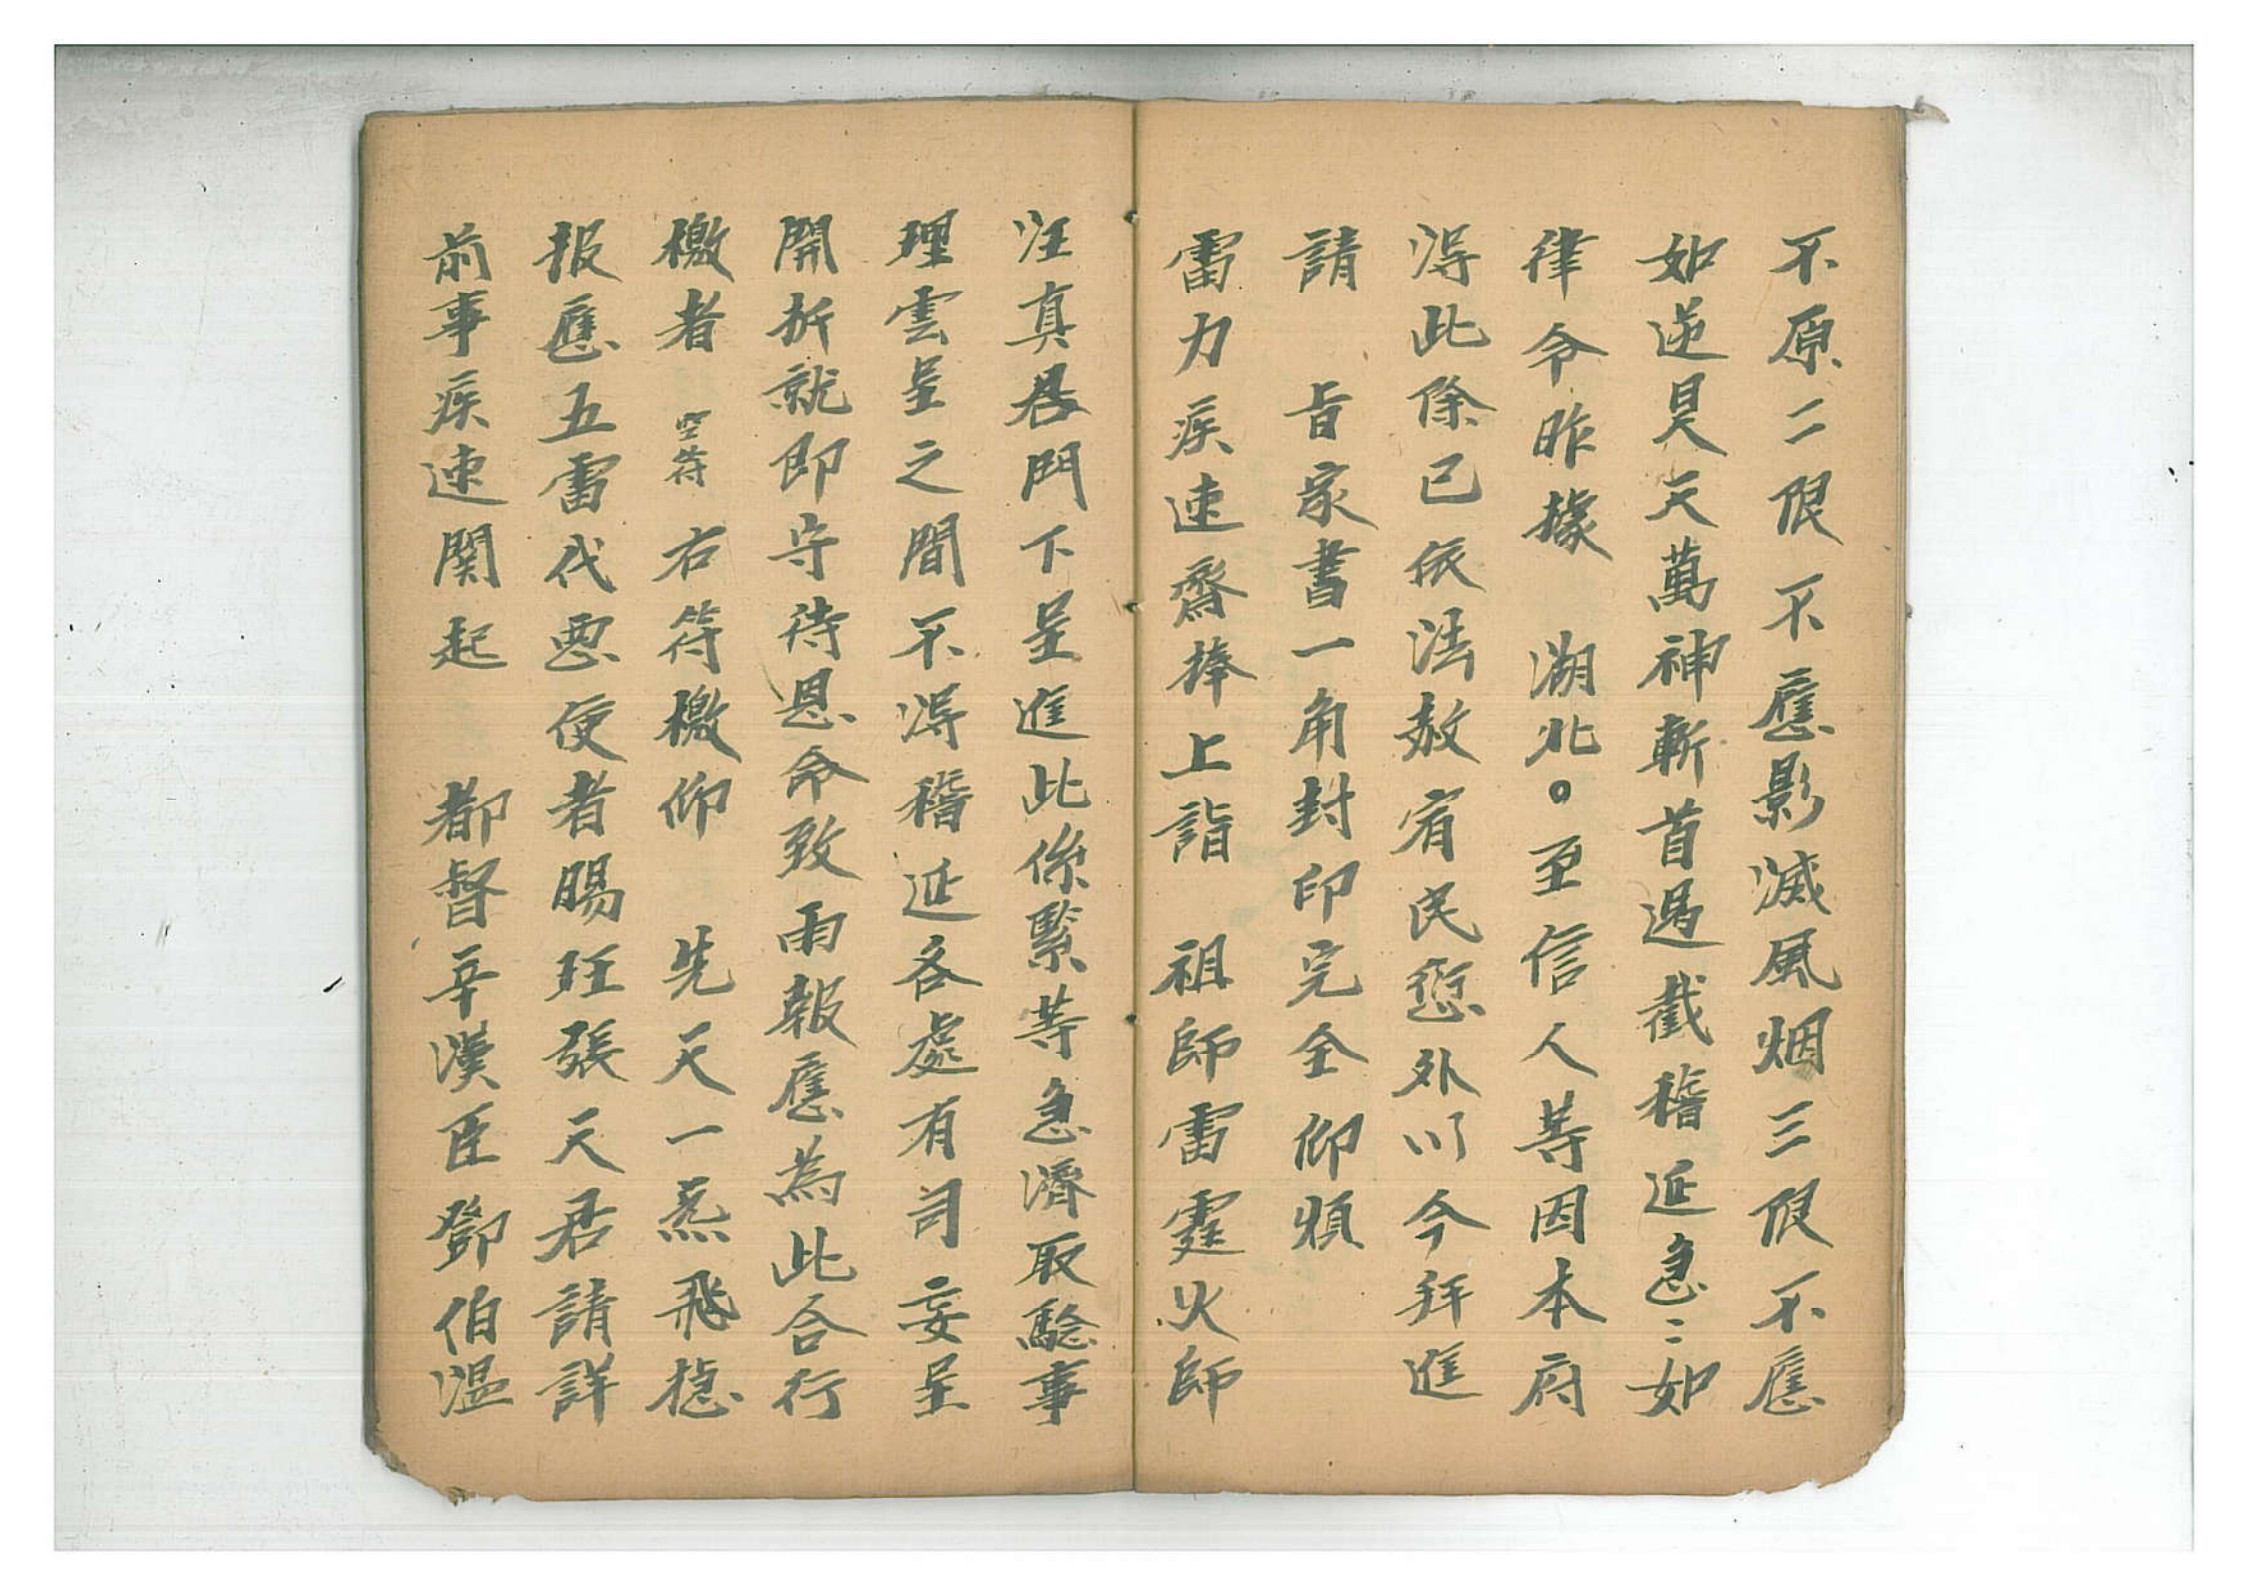 不原二限不應影滅風烟三限不應
如逆昊天萬神斬首過截稽延急〻如
律令昨據　湖北〇至信人等因本府
淂此除已依法赦宥民愆外以今拜進
請　旨家書一角封印完全仰煩
雷力疾速齎捧上詣　祖師雷霆火師
汪真君門下呈進此係緊等急濟取驗事
理雲呈之間不淂稽延各處有司妄呈
開折就即守待恩命致雨報應為此合行
檄者　空符　右符檄仰　先天一炁飛捷
报應五雷伐惡使者賜玨張天君請詳
前事疾速関起　都督辛漢臣鄧伯溫